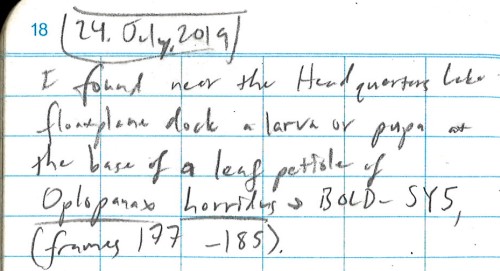 18 24. July, 2019
I found near the Headquarters Lake
floatplane dock a larva or pupa at
the base of a leaf petiole of
Oplopanax horridus → BOLD-SY5,
(frames 177 -185).